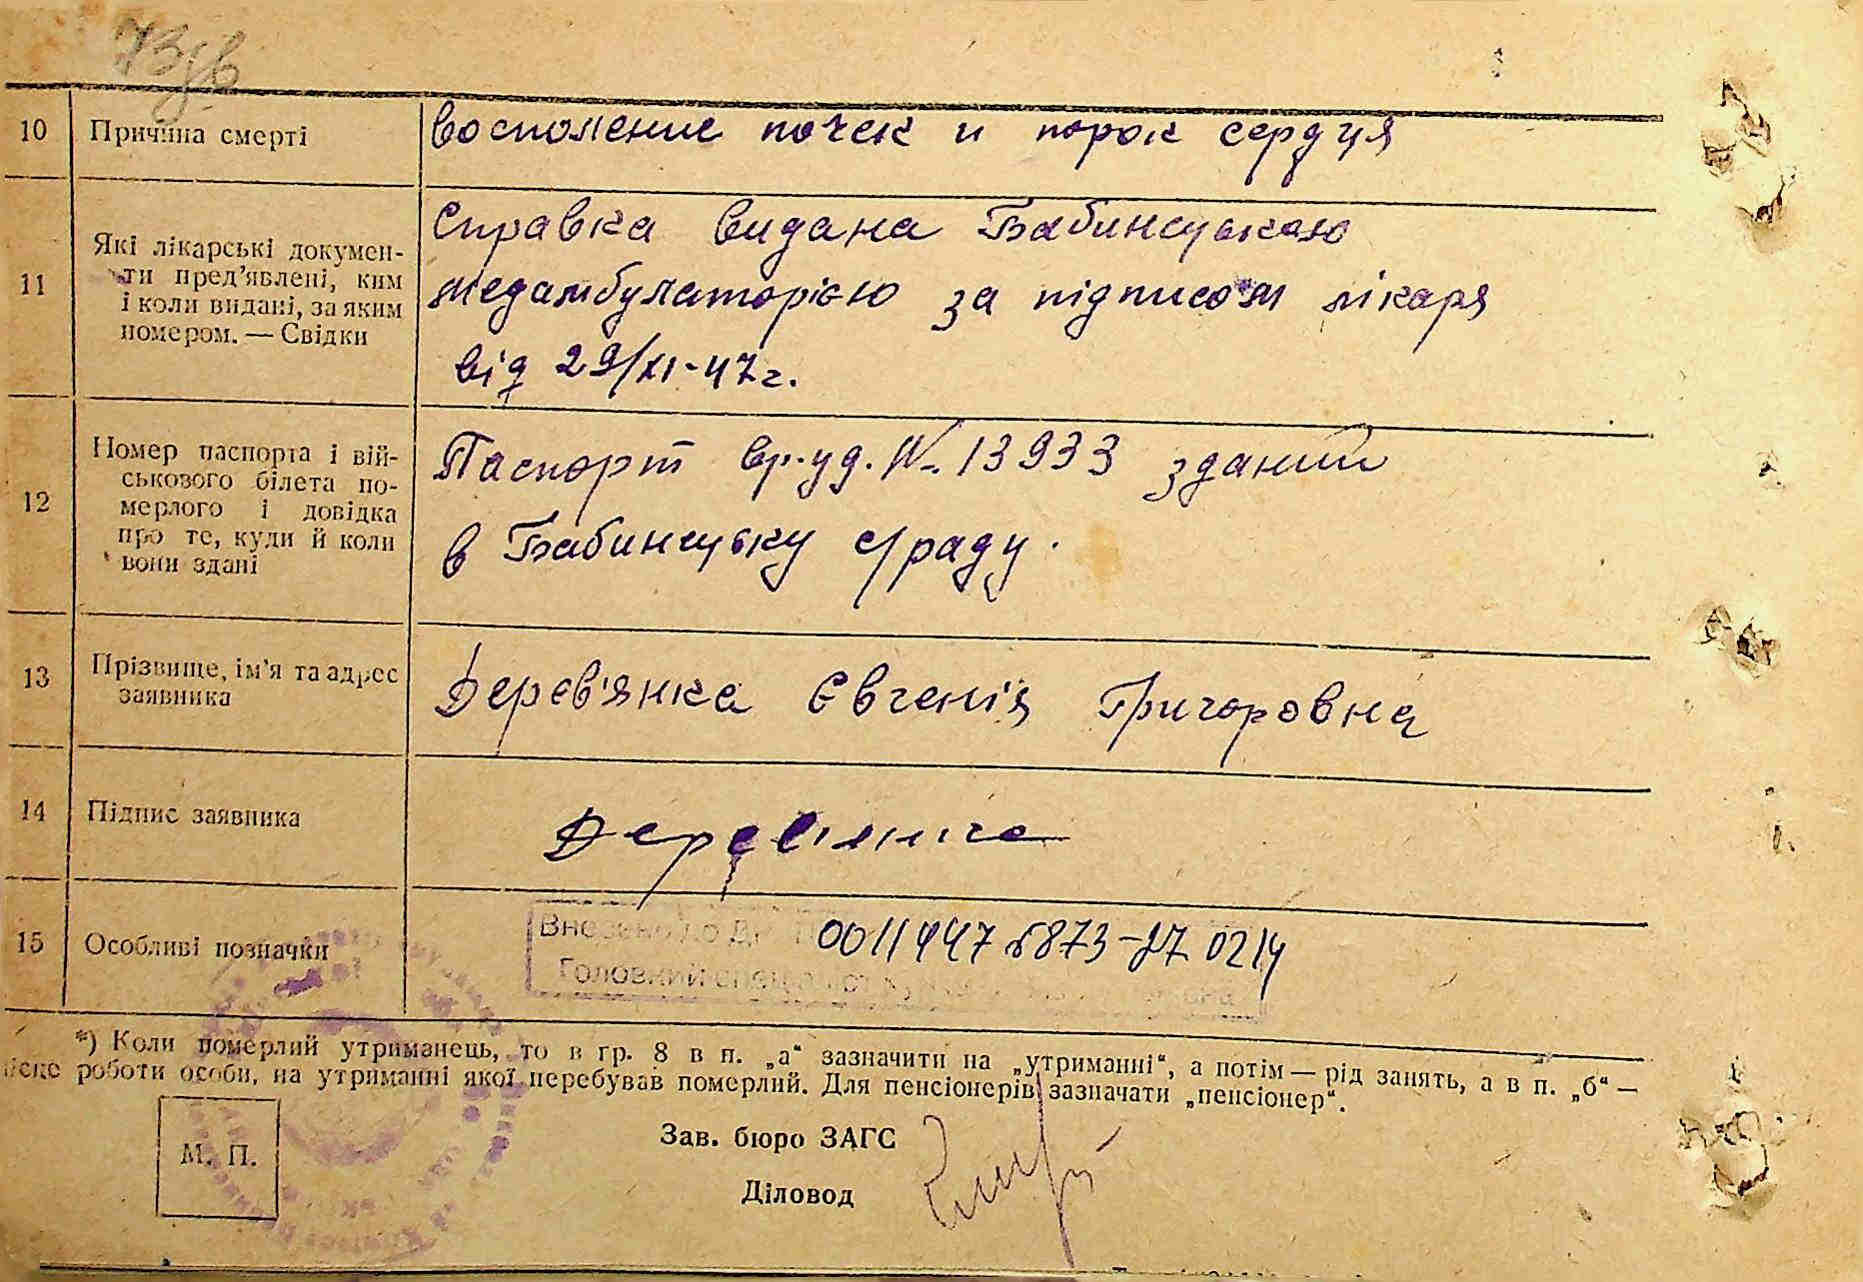 10 Причина смерті восполение почек и порок сердця
11 Які лікарські докумен-
ти пред'явлені, ким
і коли видані, за яким
номером. — Свідки
Справка видана Бабинською
медамбулаторією за підписом лікаря
від 29/XI-47г.
12 Номер паспорта і вій-
ськового білета по-
мерлого і довідка
про те, куди й коли
вони здані
Паспорт вр.уд. № 13933 зданий
в Бабинську с/раду.
13 Прізвище, ім'я та адрес
заявника
Дерев'янка Євгенія Григоровна
14 Підпис заявника Деревянка
15 Особливі позначки
Внесено до
Головний спеціаліст
*) Коли померлий утриманець, то в гр. 8 в п. „а“ зазначити на „утриманні“, а потім — рід занять, а в п. „б“ —
місце роботи особи, на утриманні якої перебував померлий. Для пенсіонерів зазначати „пенсіонер“.
М. П.
Зав. бюро ЗАГС
Діловод